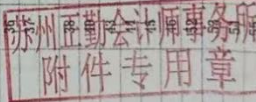 苏州正勤会计师事务所
附件专用章